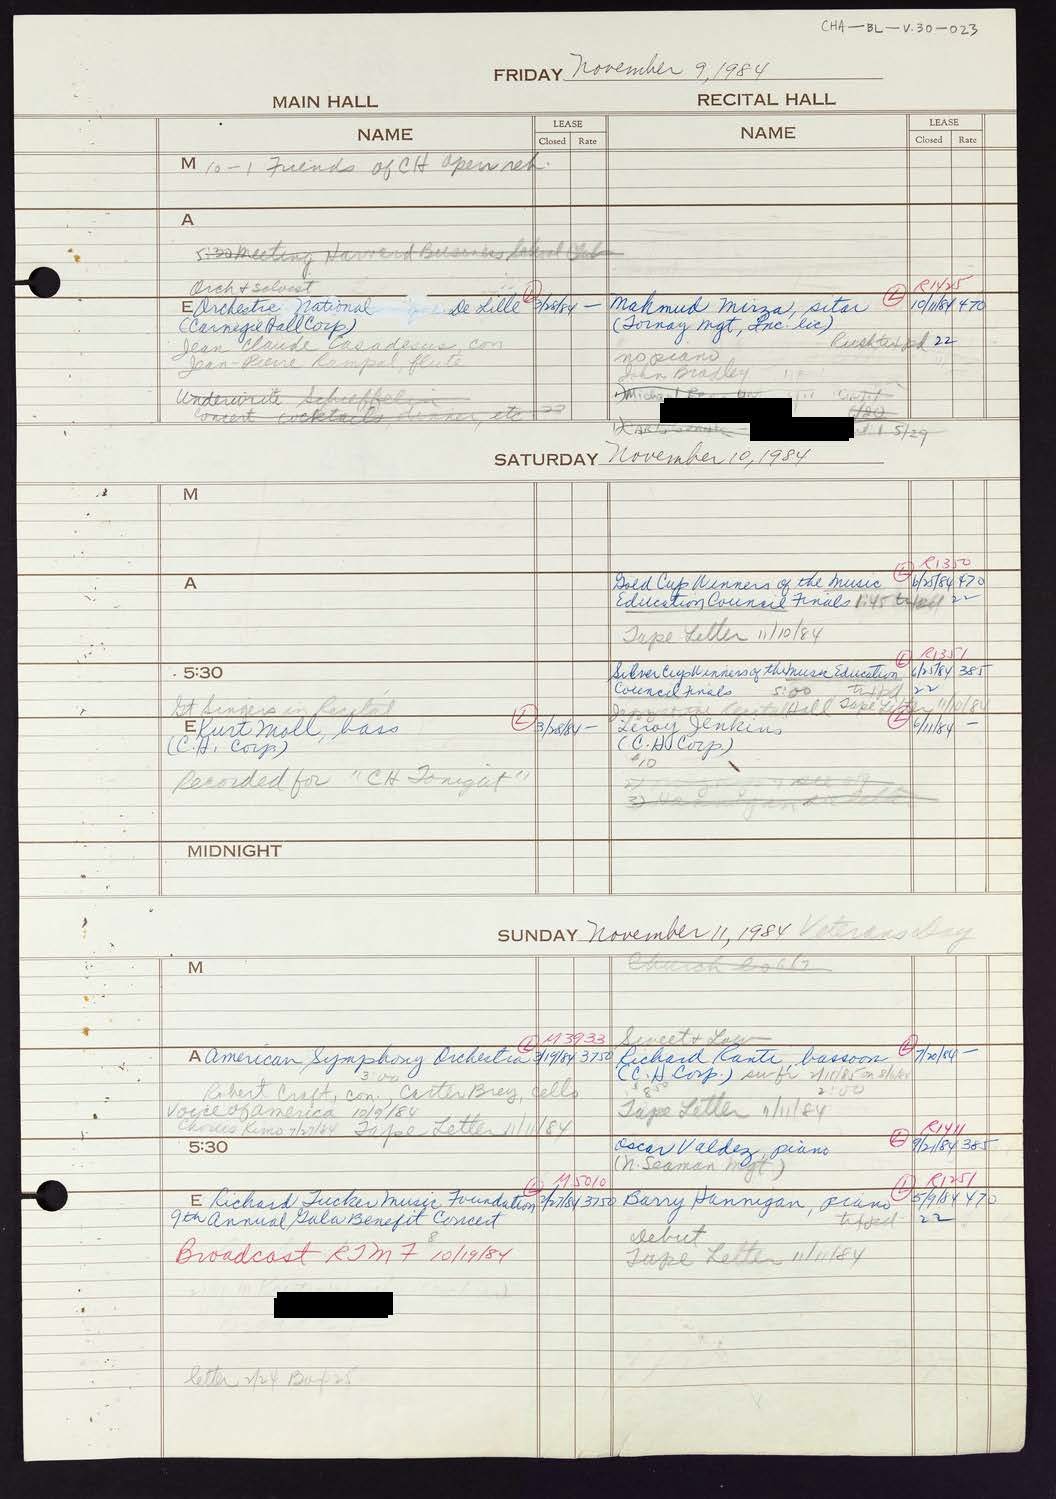 CHA-BL-V.30-023
FRIDAY November 9, 1984
MAIN HALL
RECITAL HALL
NAME
LEASE
Closed Rate
NAME
LEASE
Closed Rate
M 10-1 Friends of CH open reh.
A
5:30 Meeting Harvard Business School Club
Orch + soloist
E Orchestre National De Lille L 3/28/84 —
(Carnegie Hall Corp)
Jean Claude Casadesus, con
Jean-Pierre Rampal, flute
Underwrite Schieffelin
Concert cocktails, dinner, etc
R1425
Mahmud Mirza, sitar L 10/11/84 470
(Tornay Mgt, Inc. lic)
22
no piano
John Bradley
5/29
SATURDAY November 10, 1984
M
A
R1350
Gold Cup Winners of the Music L 6/25/84 470
Education Council Finals 1:45 22
Tape Letter 11/10/84
5:30
R1351
Silver Cup Winners of the Music Education L 6/25/84 385
Council Finals 5:00 22
Tape Letter 11/10/84
Gt Singers in Recital
E Kurt Moll, bass L 3/28/84 —
(C.H. Corp)
Recorded for "CH Tonight"
Leroy Jenkins L 6/11/84 —
(C.H. Corp)
$10
MIDNIGHT
SUNDAY November 11, 1984 Veterans Day
M
Church
M3933
A American Symphony Orchestra L 3/19/84 3750
3:00
Robert Craft, con., Carter Brey, cello
Voice of America 10/9/84
Chorus Rims 7/27/84 Tape Letter 11/11/84
Sweet + Low
Richard Rantı, bassoon L 7/20/84 —
(C.H. Corp.)
$8.50 2:00
Tape Letter 11/11/84
5:30
R1411
Oscar Valdez, piano L 9/21/84 385
(N. Seaman Mgt)
M5010
E Richard Tucker Music Foundation L 2/27/84 3750
9th Annual Gala Benefit Concert
8
Broadcast 10/19/84
R1251
Barry Hannigan, piano L 5/9/84 470
22
debut
Tape Letter 11/11/84
letter 2/24 Box 25